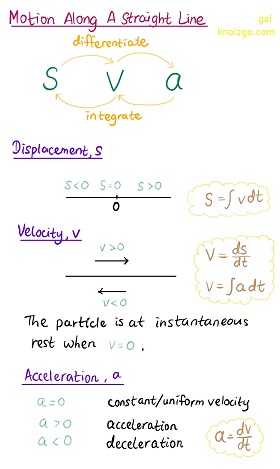 Motion Along A Straight Line
gal
knolzgo.com
differentiate
S V a
integrate
Displacement, s
S<0 S=0 S>0
0
S = ∫vdt
Velocity, v
V>0
V<0
V = ds/dt
V = ∫adt
The particle is at instantaneous
rest when V=0.
Acceleration, a
a=0 constant/uniform velocity
a>0 acceleration
a<0 deceleration
a = dv/dt